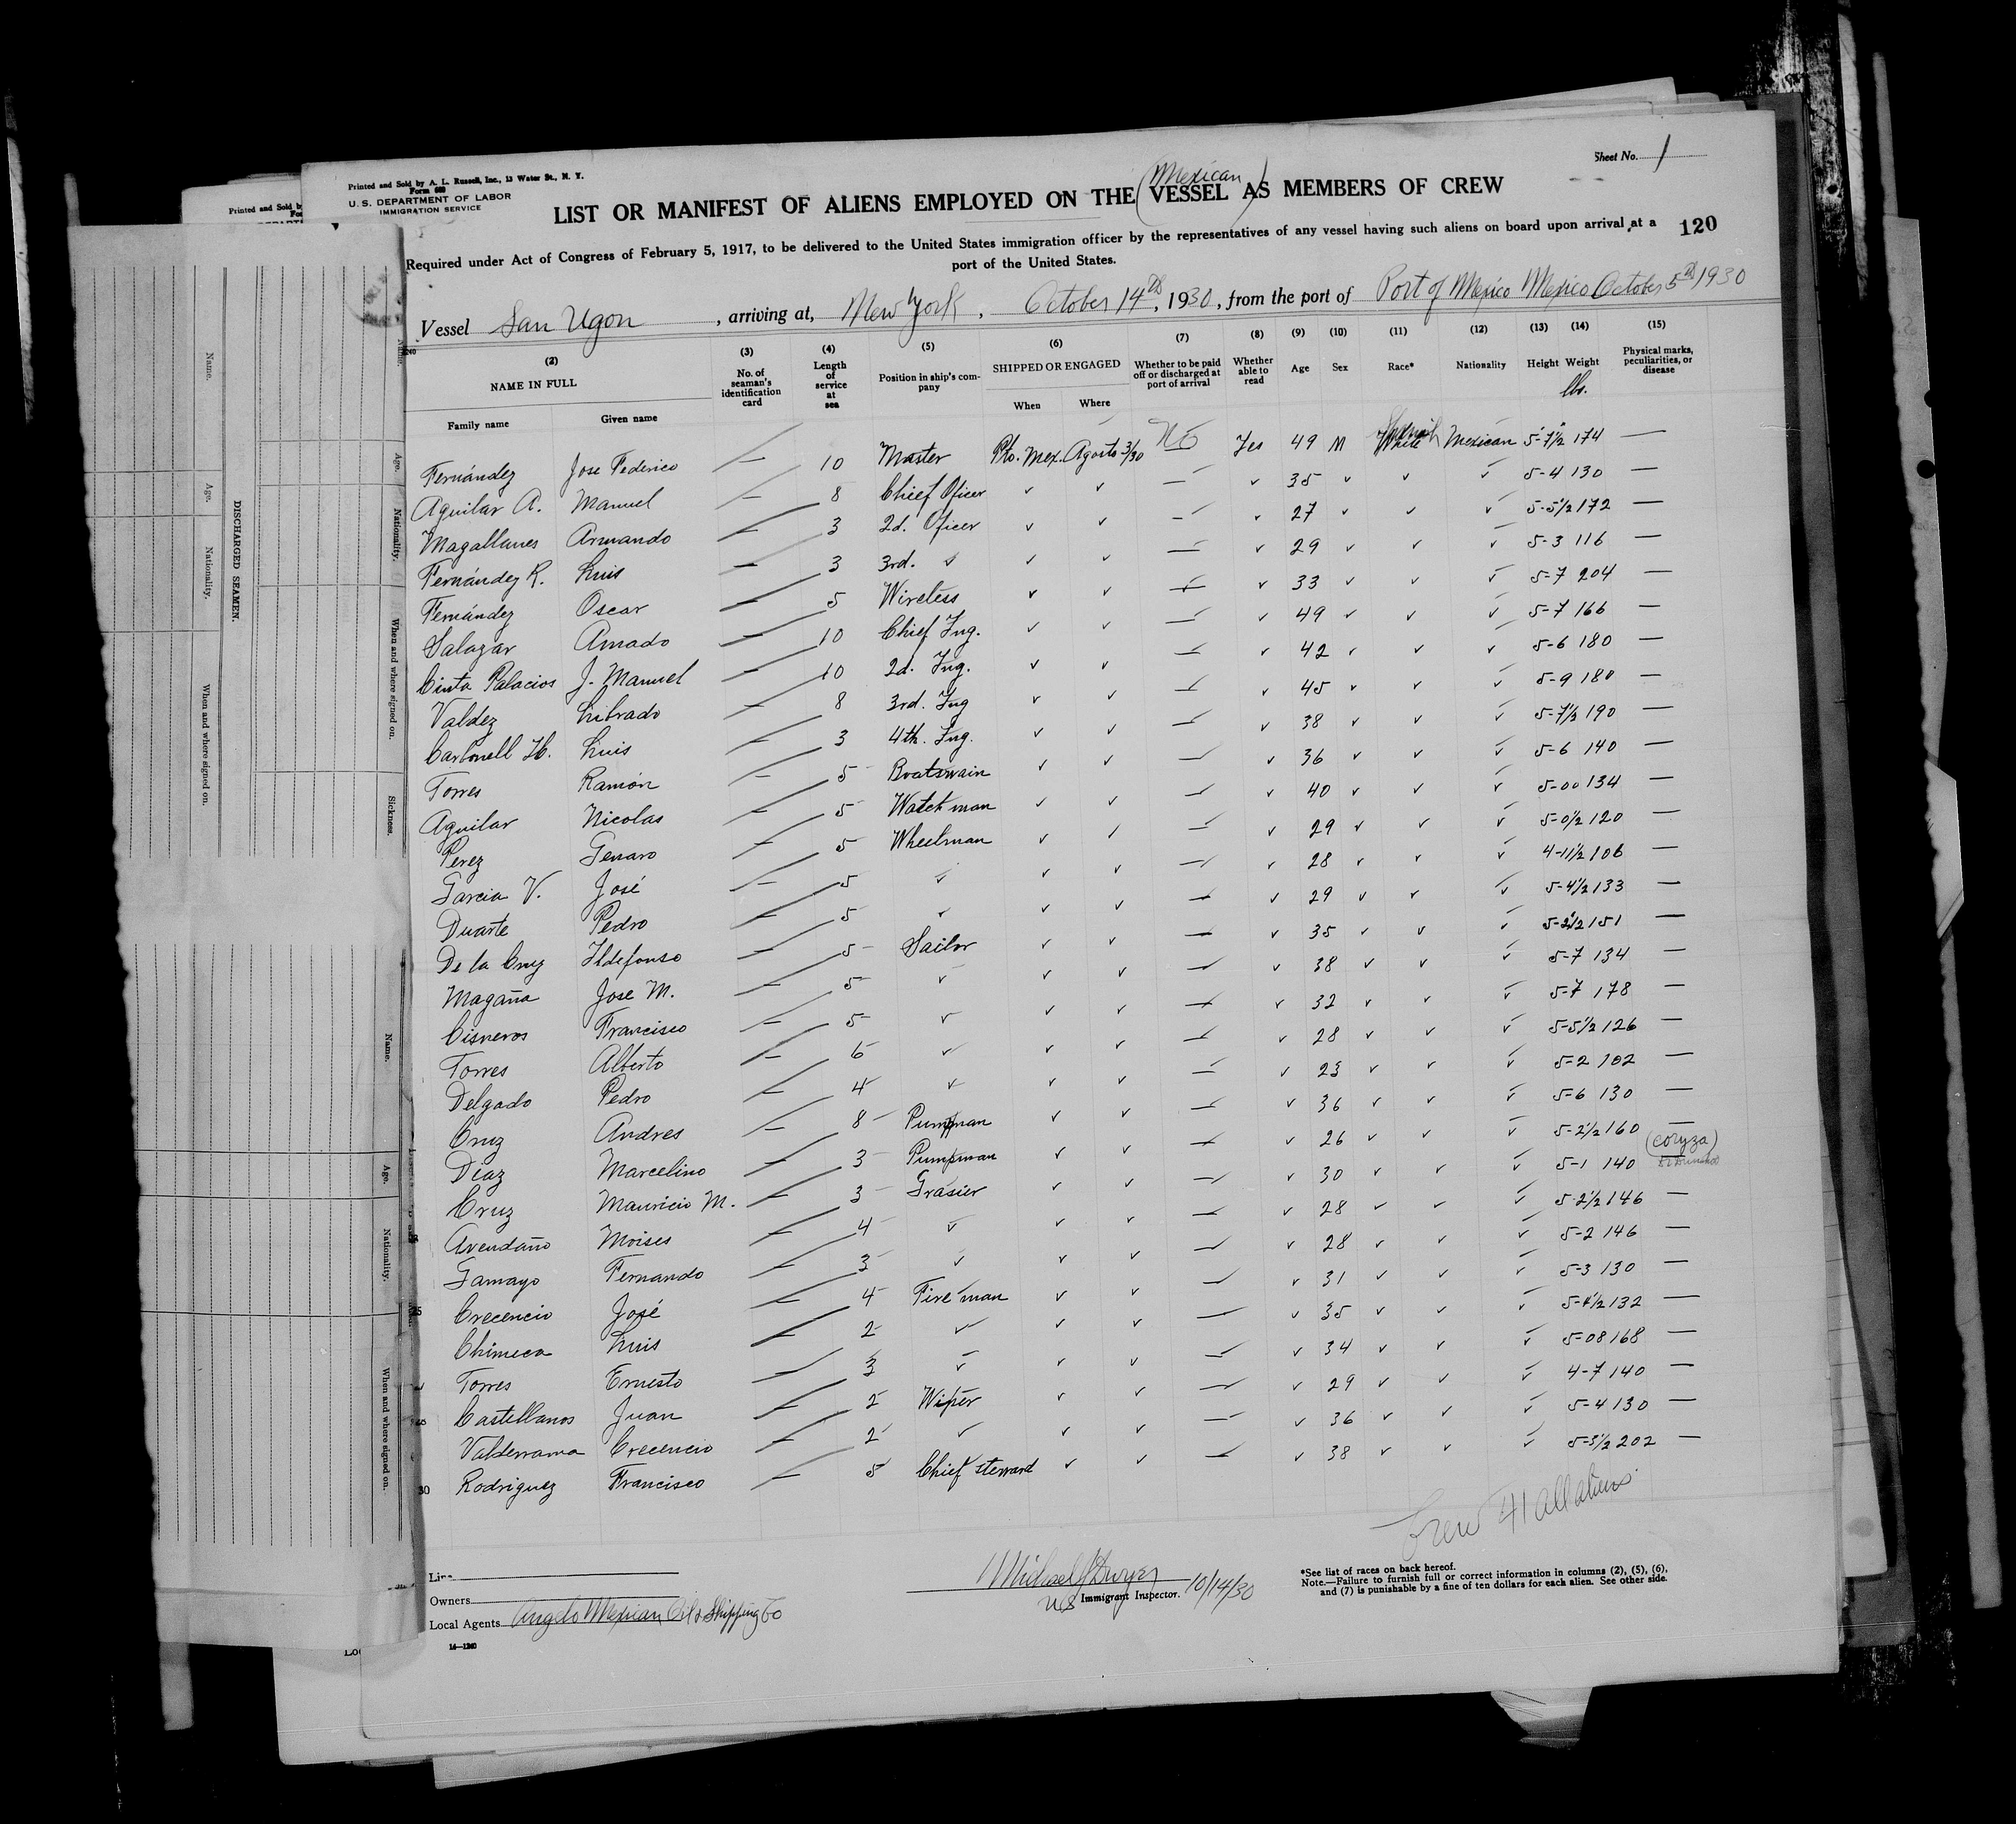 Sheet No. 1
Printed and Sold by A. L. Russell, Inc., 13 Water St., N. Y.
Form 689
U. S. DEPARTMENT OF LABOR
IMMIGRATION SERVICE
(Mexican)
LIST OR MANIFEST OF ALIENS EMPLOYED ON THE VESSEL AS MEMBERS OF CREW
120
Required under Act of Congress of February 5, 1917, to be delivered to the United States immigration officer by the representatives of any vessel having such aliens on board upon arrival at a
port of the United States.
Vessel San Ugon, arriving at, New York, October 14th, 1930, from the port of Port of Mexico Mexico October 5th 1930
(2) (3) (4) (5) (6) (7) (8) (9) (10) (11) (12) (13) (14) (15)
NAME IN FULL No. of seaman's identification card Length of service at sea Position in ship's company SHIPPED OR ENGAGED Whether to be paid off or discharged at port of arrival Whether able to read Age Sex Race* Nationality Height Weight lbs. Physical marks, peculiarities, or disease
Family name Given name When Where
Fernández Jose Federico — 10 Master Pto. Mex. Agosto 3/30 No Yes 49 M Spanish White Mexican 5-7½ 174 —
Aguilar A. Manuel — 8 Chief Oficer ✓ ✓ — ✓ 35 ✓ ✓ ✓ 5-4 130 —
Magallanes Armando — 3 2d. Oficer ✓ ✓ — ✓ 27 ✓ ✓ ✓ 5-5½ 172 —
Fernández R. Luis — 3 3rd. ✓ ✓ ✓ — ✓ 29 ✓ ✓ ✓ 5-3 116 —
Fernández Oscar — 5 Wireless ✓ ✓ — ✓ 33 ✓ ✓ ✓ 5-7 204 —
Salazar Amado — 10 Chief Ing. ✓ ✓ — ✓ 49 ✓ ✓ ✓ 5-7 166 —
Cinta Palacios J. Manuel — 10 2d. Ing. ✓ ✓ — ✓ 42 ✓ ✓ ✓ 5-6 180 —
Valdez Librado — 8 3rd. Ing ✓ ✓ — ✓ 45 ✓ ✓ ✓ 5-9 180 —
Carbonell H. Luis — 3 4th. Ing. ✓ ✓ — ✓ 38 ✓ ✓ ✓ 5-7½ 190 —
Torres Ramón — 5 Boatswain ✓ ✓ — ✓ 36 ✓ ✓ ✓ 5-6 140 —
Aguilar Nicolas — 5 Watch man ✓ ✓ — ✓ 40 ✓ ✓ ✓ 5-00 134 —
Perez Genaro — 5 Wheelman ✓ ✓ — ✓ 29 ✓ ✓ ✓ 5-0½ 120 —
Garcia V. José — 5 ✓ ✓ ✓ — ✓ 28 ✓ ✓ ✓ 4-11½ 106 —
Duarte Pedro — 5 ✓ ✓ ✓ — ✓ 29 ✓ ✓ ✓ 5-4½ 133 —
De la Cruz Ildefonso — 5 Sailor ✓ ✓ — ✓ 35 ✓ ✓ ✓ 5-2½ 151 —
Magaña Jose M. — 5 ✓ ✓ ✓ — ✓ 38 ✓ ✓ ✓ 5-7 134 —
Cisneros Francisco — 5 ✓ ✓ ✓ — ✓ 32 ✓ ✓ ✓ 5-7 178 —
Torres Alberto — 6 ✓ ✓ ✓ — ✓ 28 ✓ ✓ ✓ 5-5½ 126 —
Delgado Pedro — 4 ✓ ✓ ✓ — ✓ 23 ✓ ✓ ✓ 5-2 102 —
Cruz Andres — 8 Pumpman ✓ ✓ — ✓ 36 ✓ ✓ ✓ 5-6 130 —
Diaz Marcelino — 3 Pumpman ✓ ✓ — ✓ 26 ✓ ✓ ✓ 5-2½ 160 —
Cruz Mauricio M. — 3 Grasier ✓ ✓ — ✓ 30 ✓ ✓ ✓ 5-1 140 (coryza)
Avendaño Moises — 4 ✓ ✓ ✓ — ✓ 28 ✓ ✓ ✓ 5-2½ 146 —
Tamayo Fernando — 3 ✓ ✓ ✓ — ✓ 28 ✓ ✓ ✓ 5-2 146 —
Crecencio José — 4 Fire man ✓ ✓ — ✓ 31 ✓ ✓ ✓ 5-3 130 —
Chimeca Luis — 2 ✓ ✓ ✓ — ✓ 35 ✓ ✓ ✓ 5-4½ 132 —
Torres Ernesto — 3 ✓ ✓ ✓ — ✓ 34 ✓ ✓ ✓ 5-08 168 —
Castellanos Juan — 2 Wiper ✓ ✓ — ✓ 29 ✓ ✓ ✓ 4-7 140 —
Valderrama Crecencio — 2 ✓ ✓ ✓ — ✓ 36 ✓ ✓ ✓ 5-4 130 —
30 Rodriguez Francisco — 5 Chief steward ✓ ✓ — ✓ 38 ✓ ✓ ✓ 5-3½ 202 —
Crew 41 all aliens
Owners
Local Agents Anglo Mexican Oil & Shipping Co
14—1240
Michael J Dwyer
US Immigrant Inspector. 10/14/30
*See list of races on back hereof.
Note.—Failure to furnish full or correct information in columns (2), (5), (6),
and (7) is punishable by a fine of ten dollars for each alien. See other side.
Printed and Sold by
DISCHARGED SEAMEN.
Name.
Age.
Nationality.
When and where signed on.
Age.
Nationality.
When and where signed on.
Sickness.
Name.
Age.
Nationality.
When and where signed on.